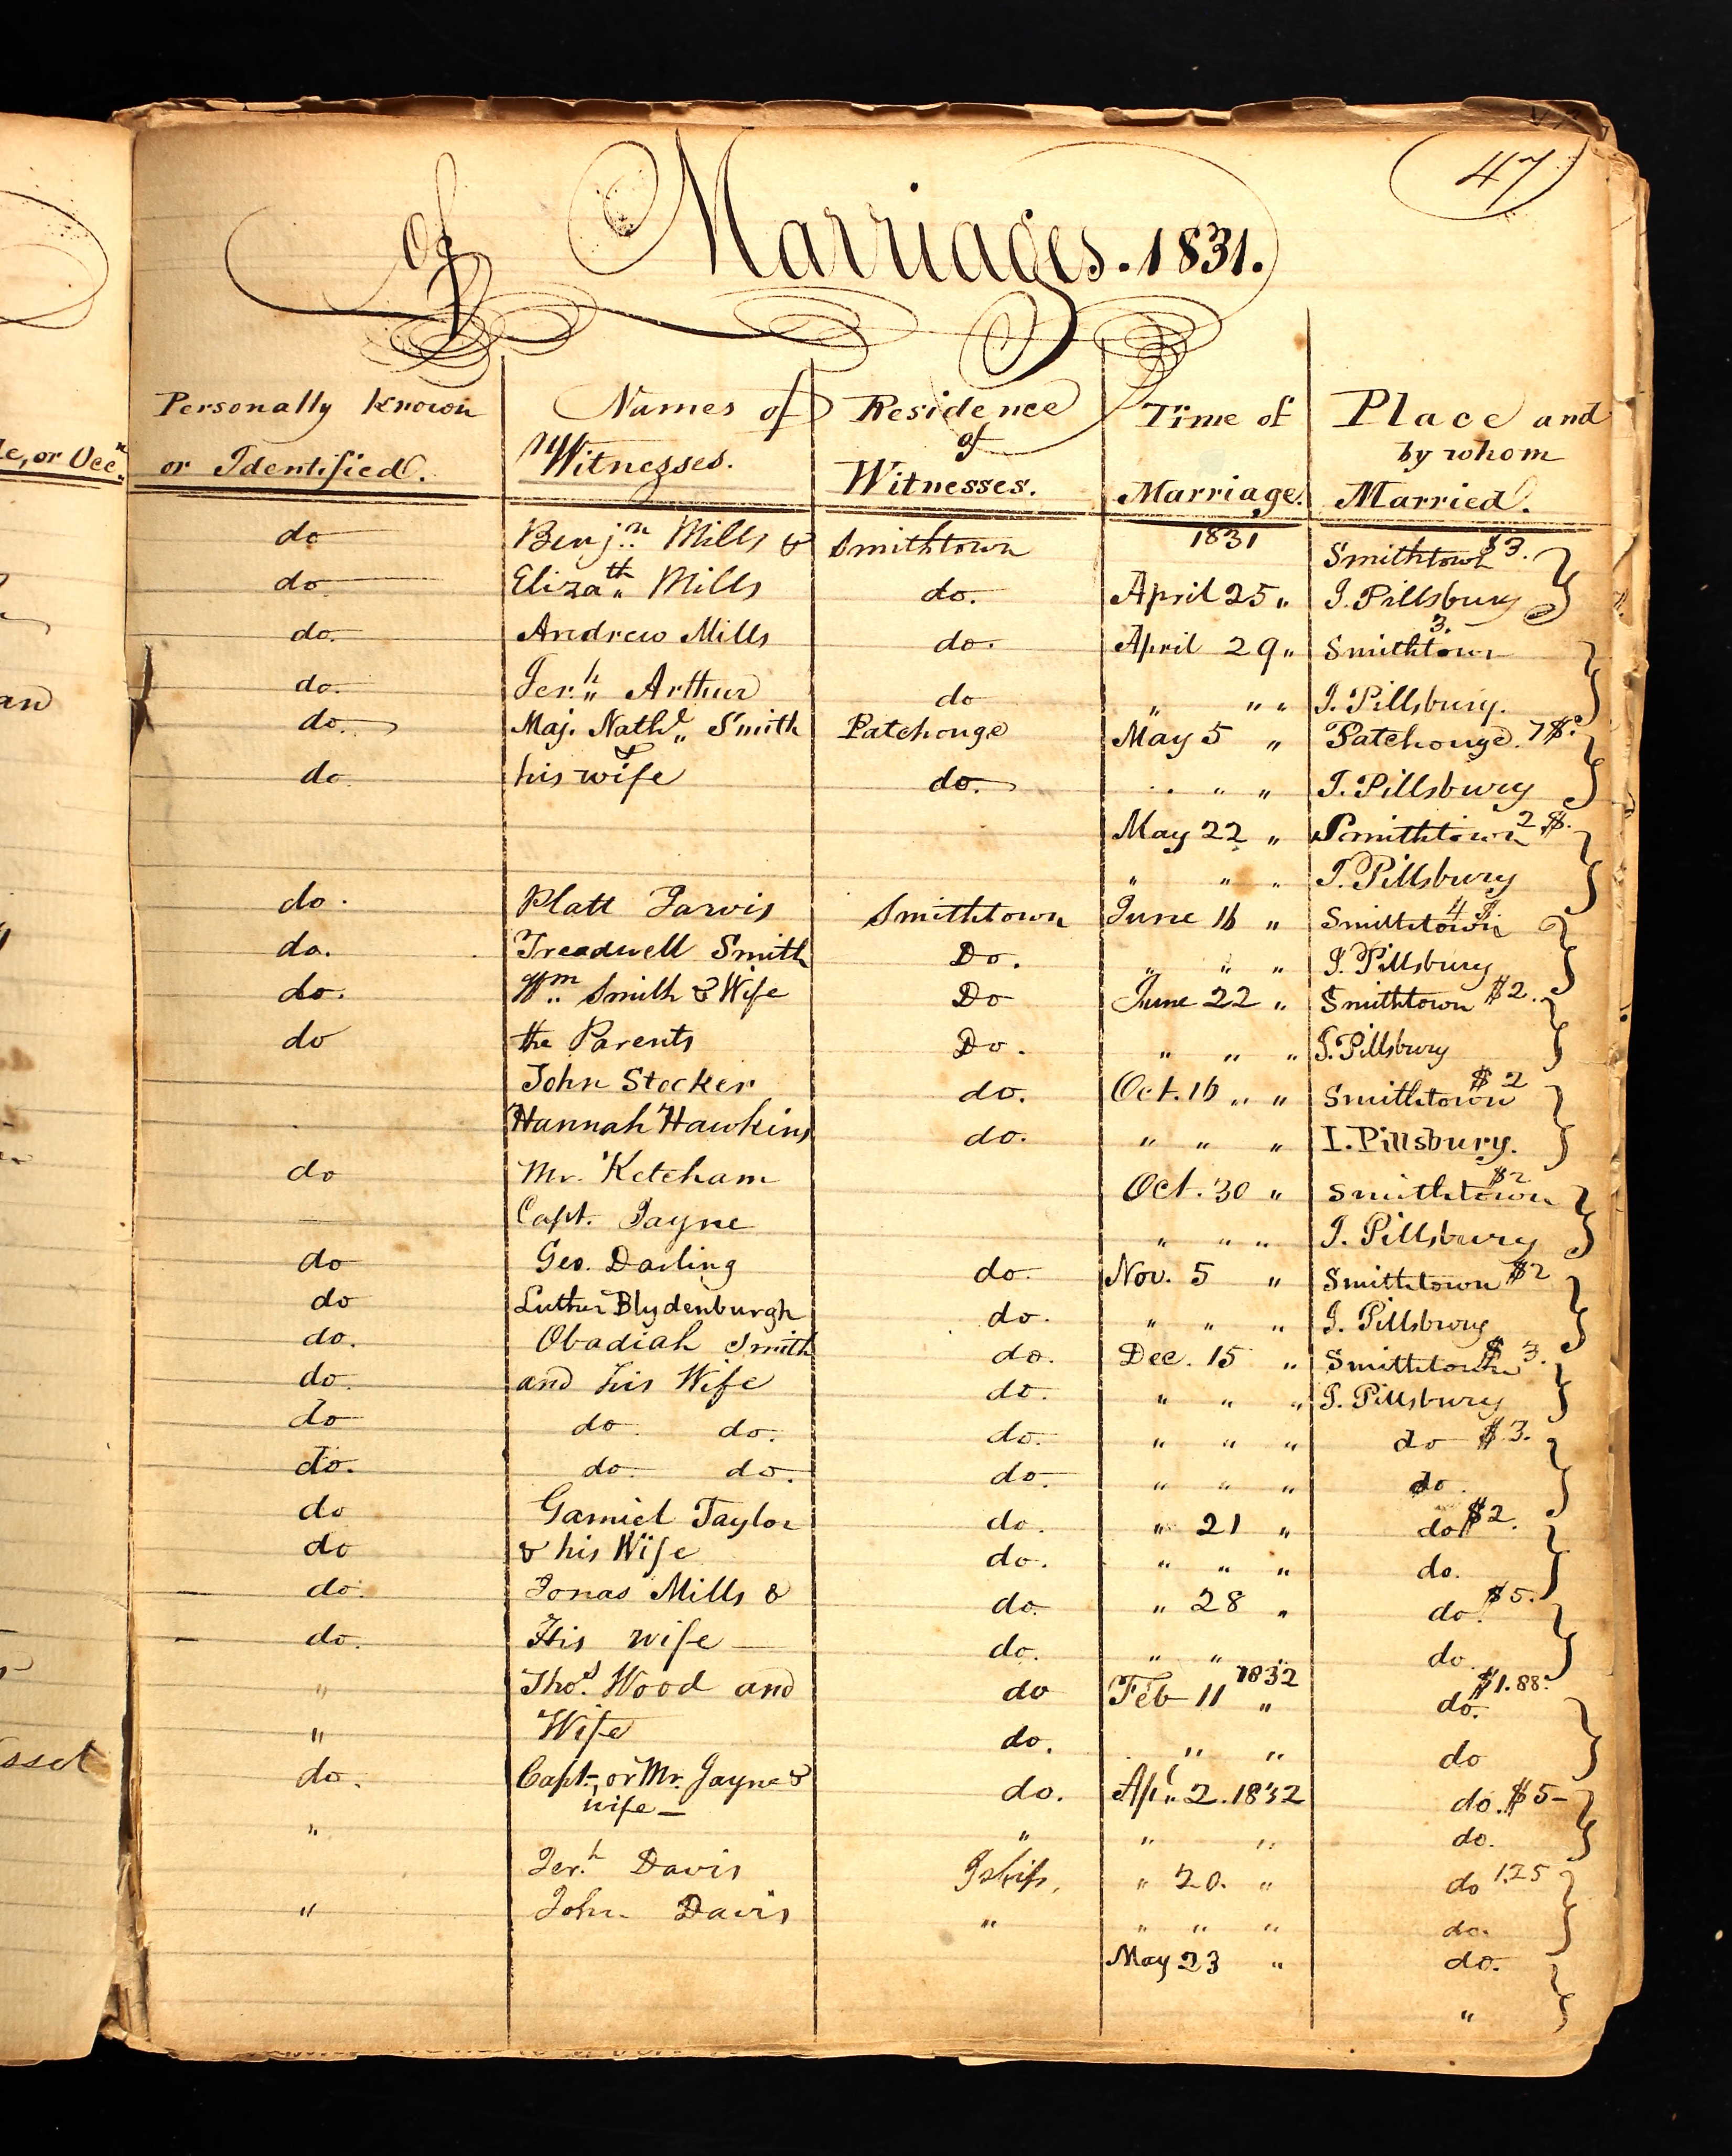 47
of Marriages. 1831.
Personally Known or Identified. Names of Witnesses. Residence of Witnesses. Time of Marriage. Place and by whom Married.
le, or Occn.
do Benjn. Mills & Smithtown 1831 Smithtown $3.
do. Elizath. Mills do. April 25 " I. Pillsbury
do. Andrew Mills do. April 29 " Smithtown 3.
do. Jerh. Arthur do " " " I. Pillsbury.
do. Maj. Nathl. Smith Patchouge May 5 " Patchouge. 7$.
do his wife do. " " " I. Pillsbury
May 22 " Smithtown 2$.
" " " I. Pillsbury
do. Platt Jarvis Smithtown June 16 " Smithtown 4$
do. Treadwell Smith Do. " " " I. Pillsbury
do. Wm. Smith & Wife Do June 22 " Smithtown $2.
do the Parents Do. " " " I. Pillsbury
John Stocker do. Oct. 16 " " Smithtown $2
Hannah Hawkins do. " " " I. Pillsbury.
do Mr. Ketcham Oct. 30 " Smithtown $2
Capt. Jayne " " " I. Pillsbury
do Geo. Darling do. Nov. 5 " Smithtown $2
do Luther Blydenburgh do. " " " I. Pillsbury
do. Obadiah Smith do. Dec. 15 " Smithtown $3.
do. and his Wife do. " " " I. Pillsbury
do do. do. do. " " " do $3.
do. do. do. do. " " " do.
do Gamiel Taylor do. " 21 " do $2.
do & his Wife do. " " " do.
do. Jonas Mills & do. " 28 " do. $5.
do. His wife do. " " " do.
" Thos. Wood and do Feb 11 1832 " do. $1.88.
" Wife do. " " do
do. Capt., or Mr. Jayne & do. Apl. 2. 1832 do. $5
wife
" " " " do.
Jerh. Davis Islip, " 20. " do 1.25
" John Davis " " " " do.
May 23 " do.
"